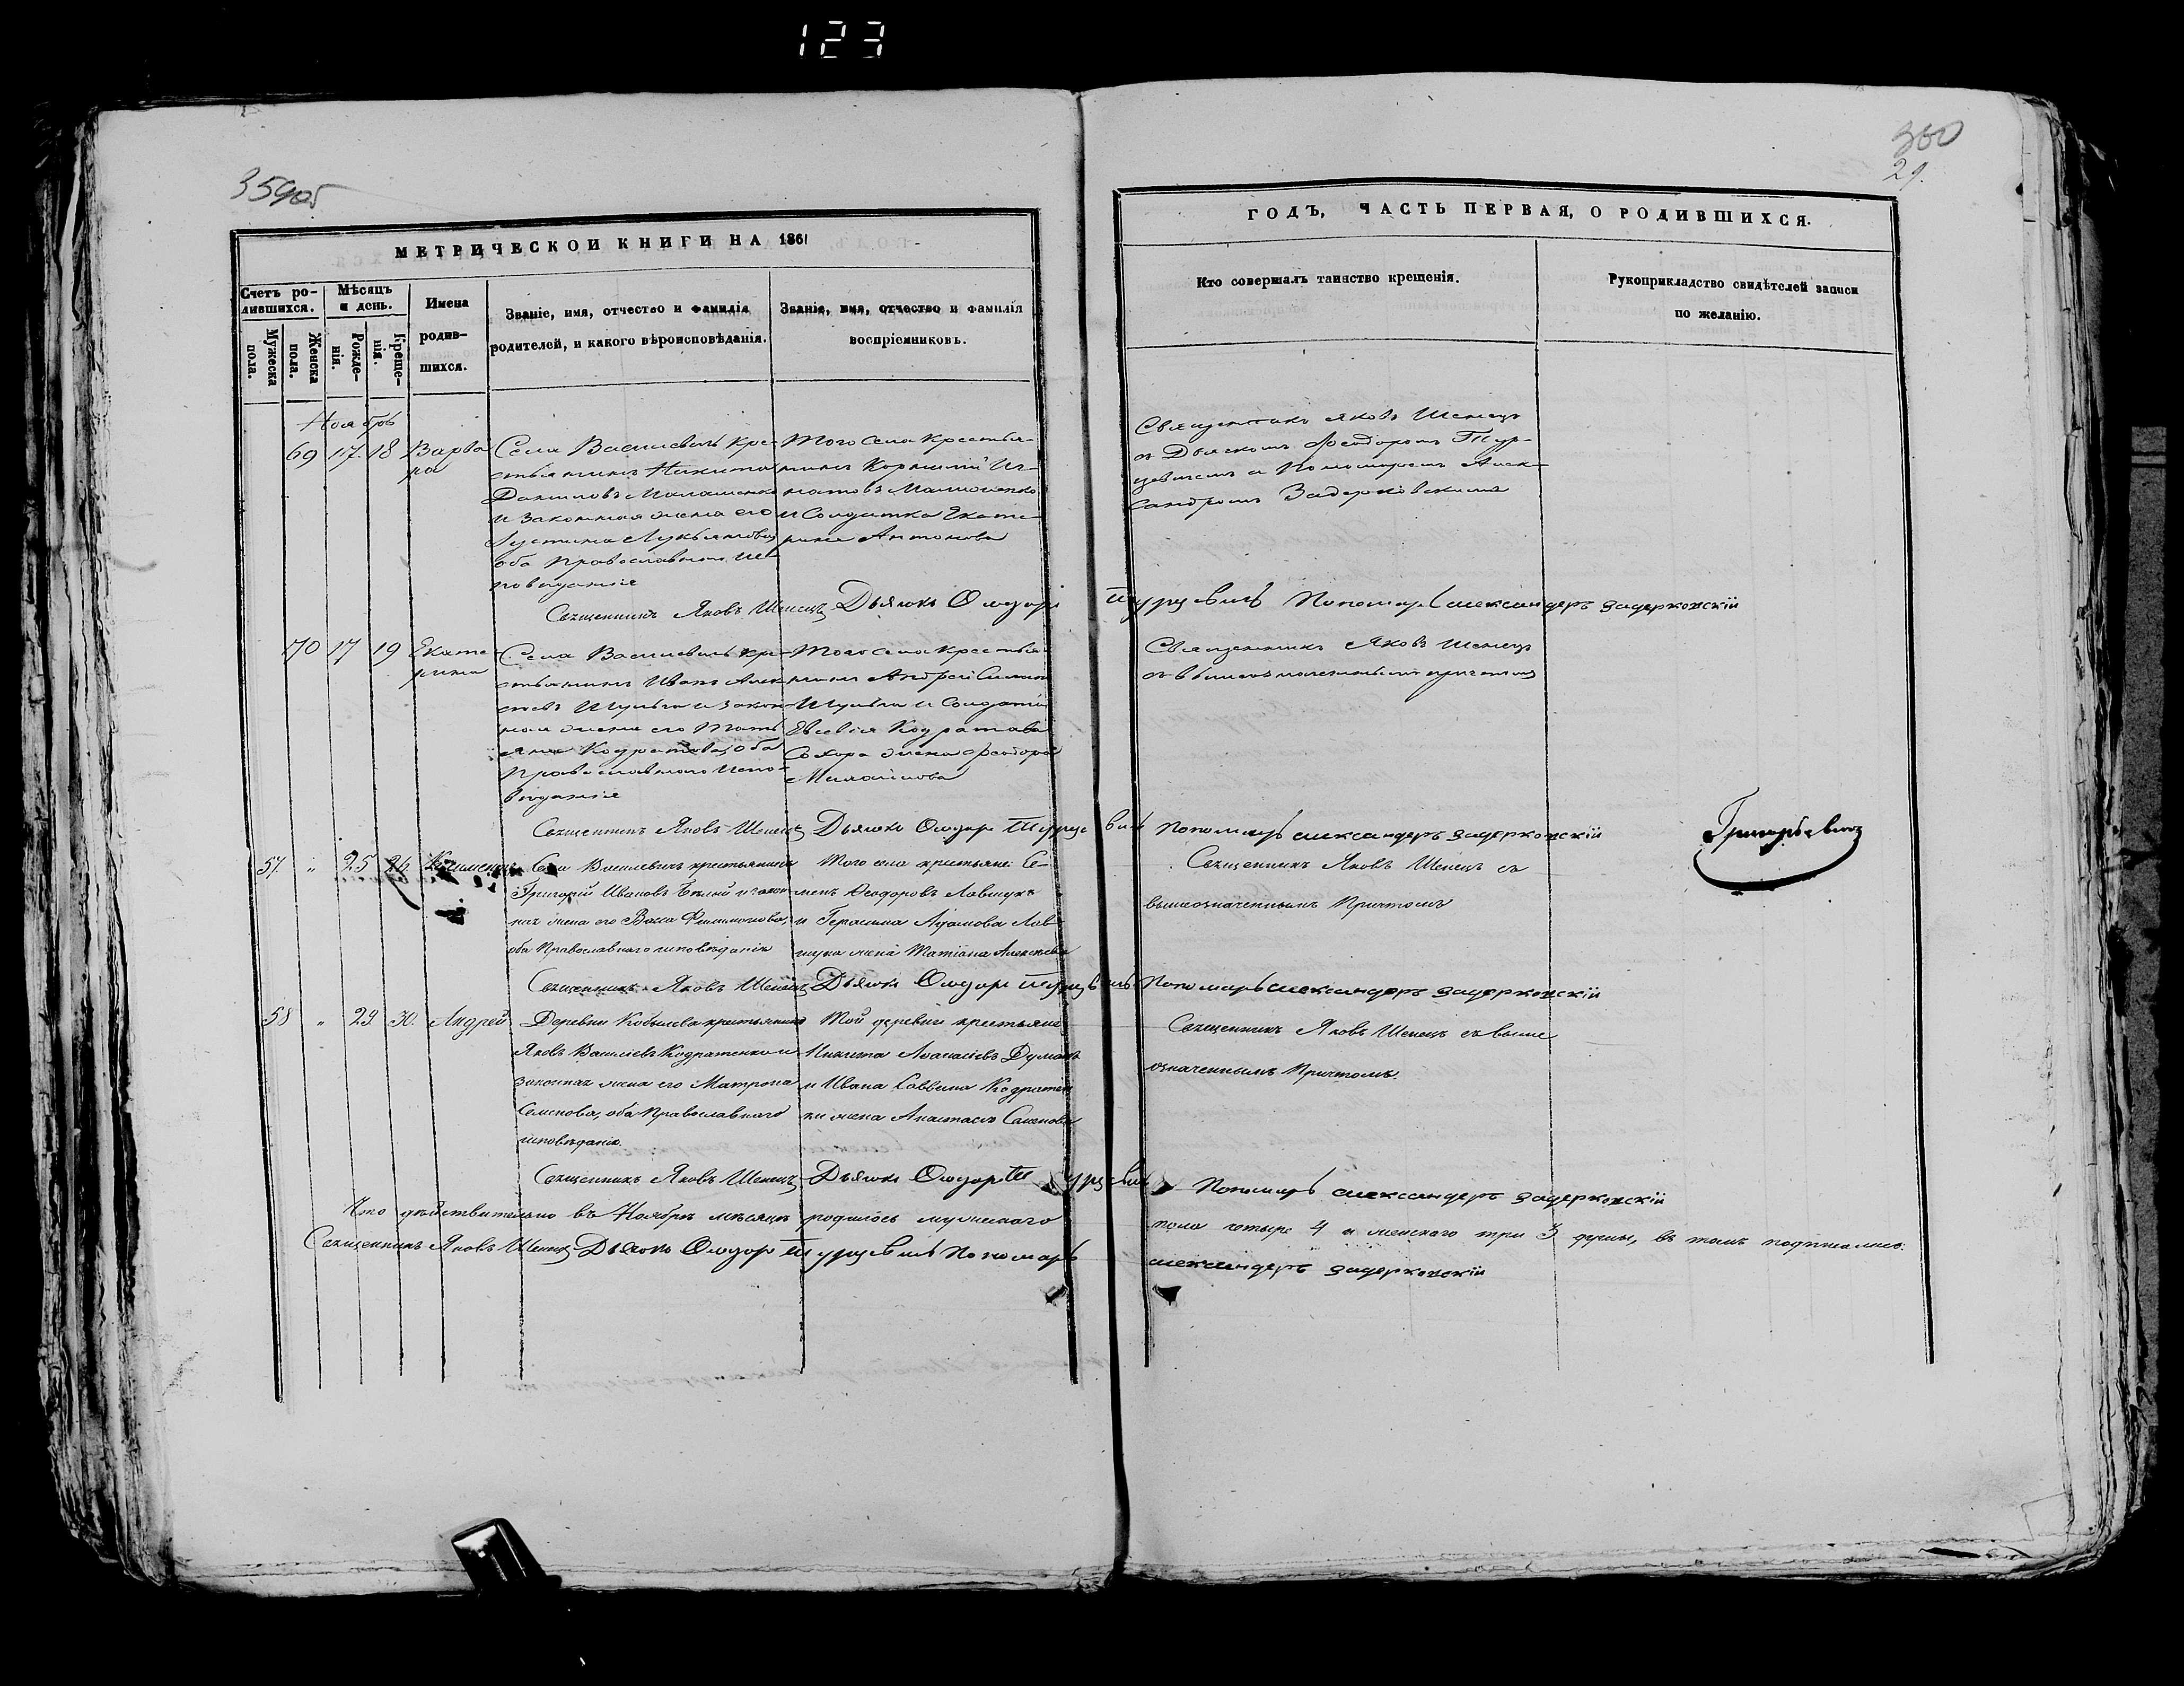 123
359об
360
29.
МЕТРИЧЕСКОИ КНИГИ НА 1861
ГОДЪ, ЧАСТЬ ПЕРВАЯ, О РОДИВШИХСЯ.
Счетъ ро-
дившихся.
Мужеска
пола.
Женска
пола.
Мѣсяцъ
и день.
Рожде-
нія.
Креще-
нія.
Имена
родив-
шихся.
Званіе, имя, отчество и фамилія
родителей, и какого вѣроисповѣданія.
Званіе, имя, отчество и фамилія
воспріемниковъ.
Кто совершалъ таинство крещенія.
Рукоприкладство свидѣтелей записи
по желанію.
Ноябрь
69 17. 18 Варва
ра
Села Василевичь кре-
стьянинъ Никита
Даниловъ
и законная жена его
Іустина Лукьянова
оба православнаго ис-
поведанія
Того села крестья-
нинъ Корнилій Иг-
натовъ
и Солдатка Екате-
рина Антонова
Священникъ Яковъ Шенецъ
съ Дьякомъ Феодоромъ Тур-
цевичемъ и Пономаремъ Алек-
сандромъ Задерковскимъ
Священникъ Яковъ Шенецъ Дьячокъ Ѳеодоръ Турцевичь Пономарь Александеръ Задерковскій
70 17 19 Екате
рина
Села Василевичь кре-
стьянинъ Иванъ Алек
сѣевъ Шульга и закон
ная жена его Тать
яна Кодратова, оба
Православнаго Испо-
веданія
Того села крестья
нинъ Андрей
Шульга и Солдатка
Евсевія Кодратова
жена Феодора
Священникъ Яковъ Шенецъ
съ вышеозначеннымъ причтомъ
Священникъ Яковъ Шенецъ Дьячокъ Ѳеодоръ Турцевичь Пономарь Александеръ Задерковскій
57. „ 25 26 Климентъ
Села Василевичъ крестьянинъ
Григорій Ивановъ Бѣлый и закон
ная жена его Васса Филимонова,
оба Православнаго исповѣданія
Того села крестьяне: Се-
менъ Ѳеодоровъ Лавщукъ
и Герасима Адамова Лав
щука жена Татіана Алексѣева
Священникъ Яковъ Шенецъ съ
вышеозначеннымъ Причтомъ
Григоровичъ
Священникъ Яковъ Шенецъ Дьячокъ Ѳеодоръ Турцевичь Пономарь Александеръ Задерковскій
58 „ 29 30. Андрей
Деревни Кобылева крестьянинъ
Яковъ Василіевъ Кодратенко и
законная жена его Матрона
Семенова, оба Православнаго
исповѣданія.
Той деревни крестьяне
Никита Аѳанасіевъ
и Ивана Саввина Кодратен
ки жена Анастасія Семенова
Священникъ Яковъ Шенецъ съ выше
означеннымъ Причтомъ.
Священникъ Яковъ Шенецъ Дьячокъ Ѳеодоръ Турцевичь Пономарь Александеръ Задерковскій
Что дѣйствительно въ Ноябрѣ мѣсяцѣ родилось мужескаго пола четыре 4 и женскаго три 3 души, въ томъ подписались:
Священникъ Яковъ Шенецъ Дьячокъ Ѳеодоръ Турцевичь Пономарь Александеръ Задерковскій